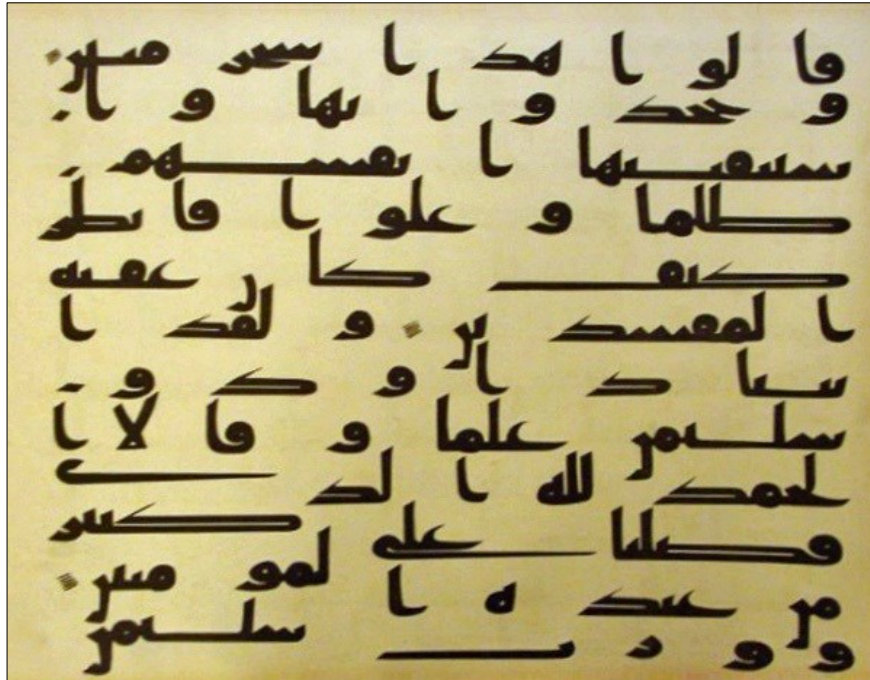 قالوا هذا سحر مبين
وجحدوا بها وا
ستيقنتها انفسهم
ظلما وعلوا فانظر
كيف كان عقبة
المفسدين ولقد ا
تينا داود و
سليمن علما وقالا ا
لحمد لله الذى
فضلنا على كثير
من عباده المومنين
وورث سليمن